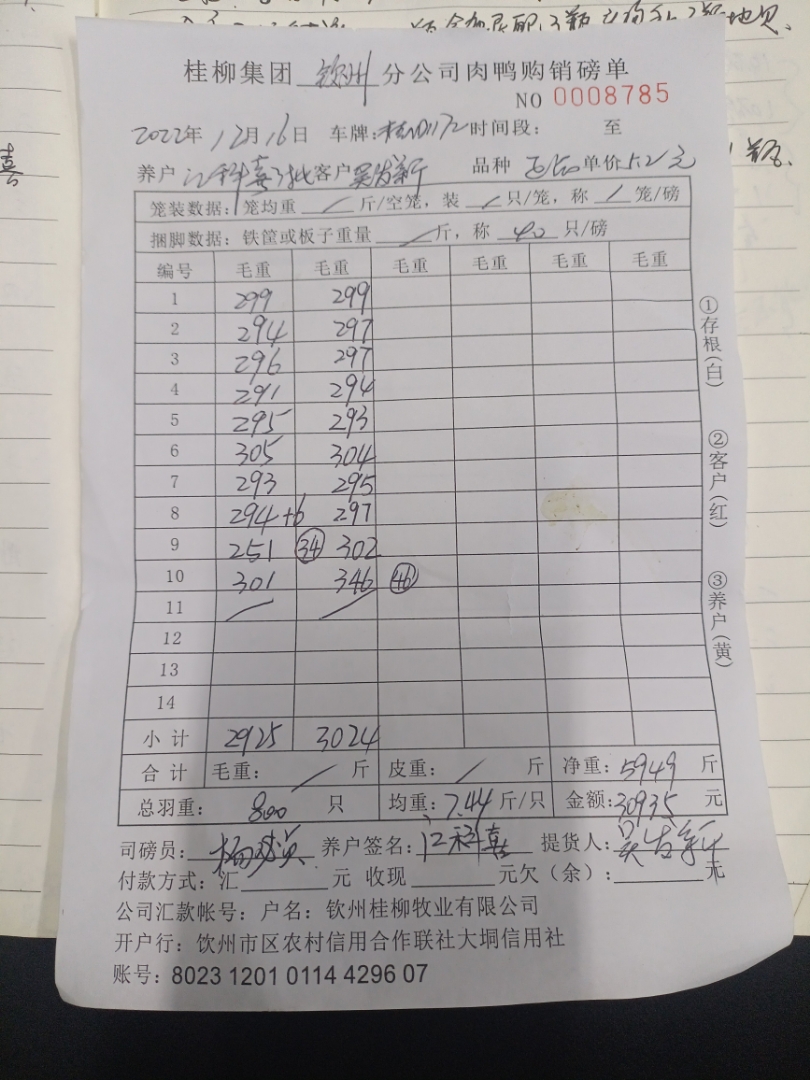 桂柳集团 钦州 分公司肉鸭购销磅单
NO 0008785
2022年 12月16日 车牌: 时间段: 至
养户 江科喜 客户 吴发新 品种 单价 5.2/元
笼装数据: 笼均重 / 斤/空笼, 装 / 只/笼, 称 / 笼/磅
捆脚数据: 铁筐或板子重量 / 斤, 称 40 只/磅
编号 毛重 毛重 毛重 毛重 毛重 毛重
1 299 299
2 294 297
3 296 297
4 291 294
5 295 293
6 305 304
7 293 295
8 294+6 297
9 251 34 302
10 301 346 46
11 / /
12
13
14
小计 2925 3024
合计 毛重: / 斤 皮重: / 斤 净重: 5949 斤
总羽重: 800 只 均重: 7.44 斤/只 金额: 30935 元
司磅员: 养户签名: 江科喜 提货人: 吴发新
付款方式: 汇 元 收现 元欠(余): 元
公司汇款帐号: 户名: 钦州桂柳牧业有限公司
开户行: 饮州市区农村信用合作联社大垌信用社
账号: 8023 1201 0114 4296 07
①存根(白)
②客户(红)
③养户(黄)